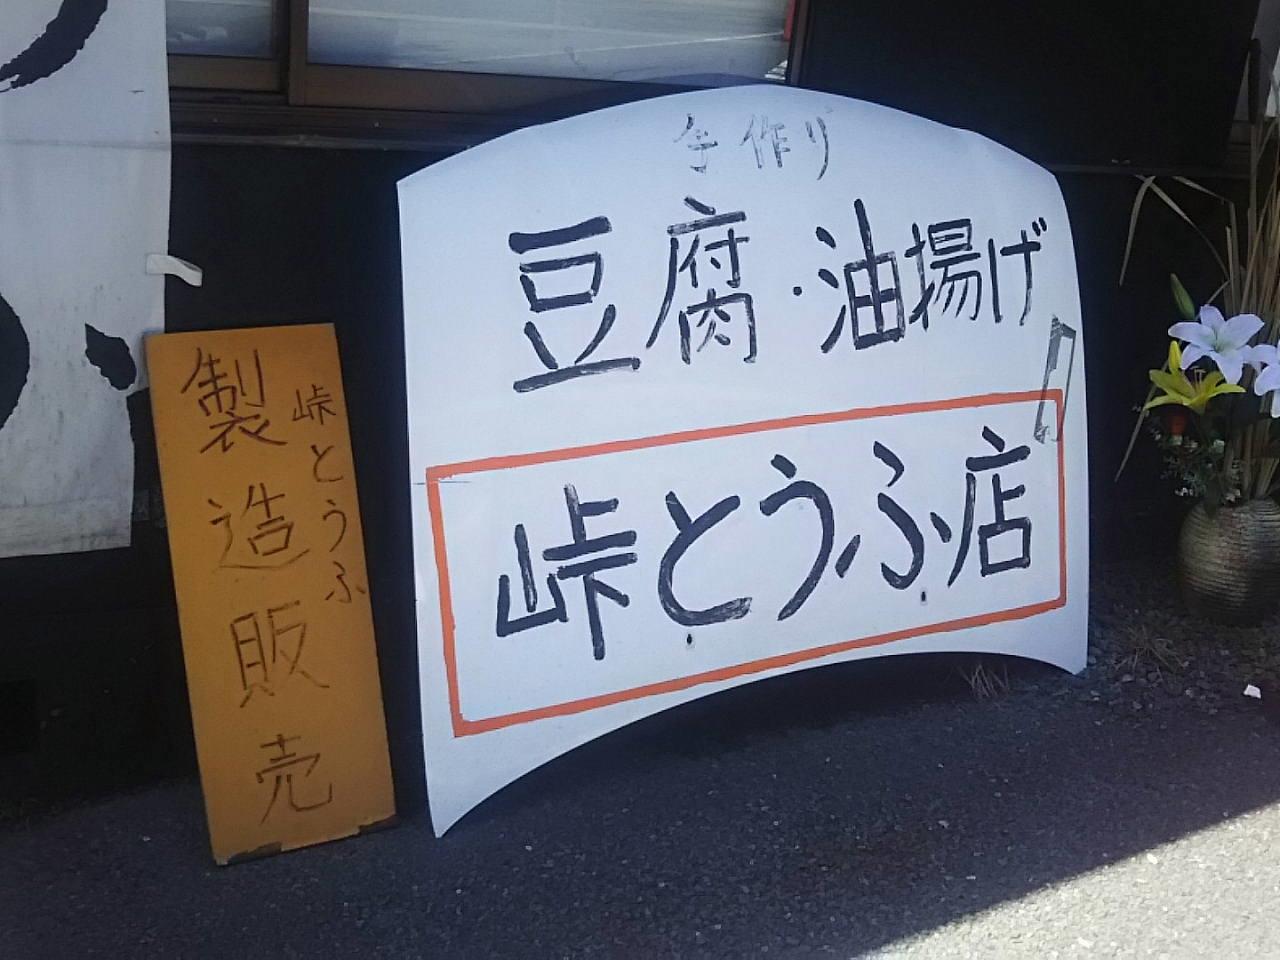 手作り
豆腐・油揚げ
峠とうふ店
峠とうふ
製造販売